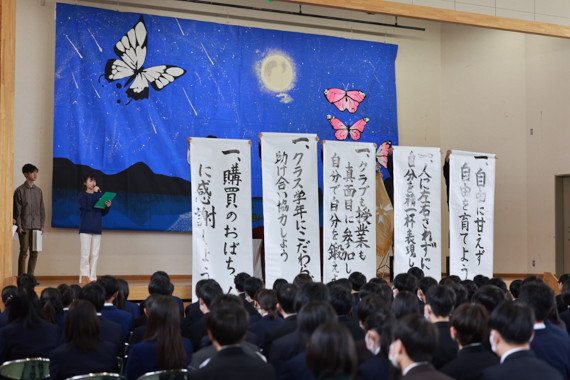 一、自由に甘えず
自由を育てよう
一、人に左右されずに
自分を精一杯表現し
一、クラブも授業も
真面目に参加し
自分で自分を鍛え
一、クラス学年にこだわら
助け合い協力しよう
一、購買のおばちゃん
に感謝しよう